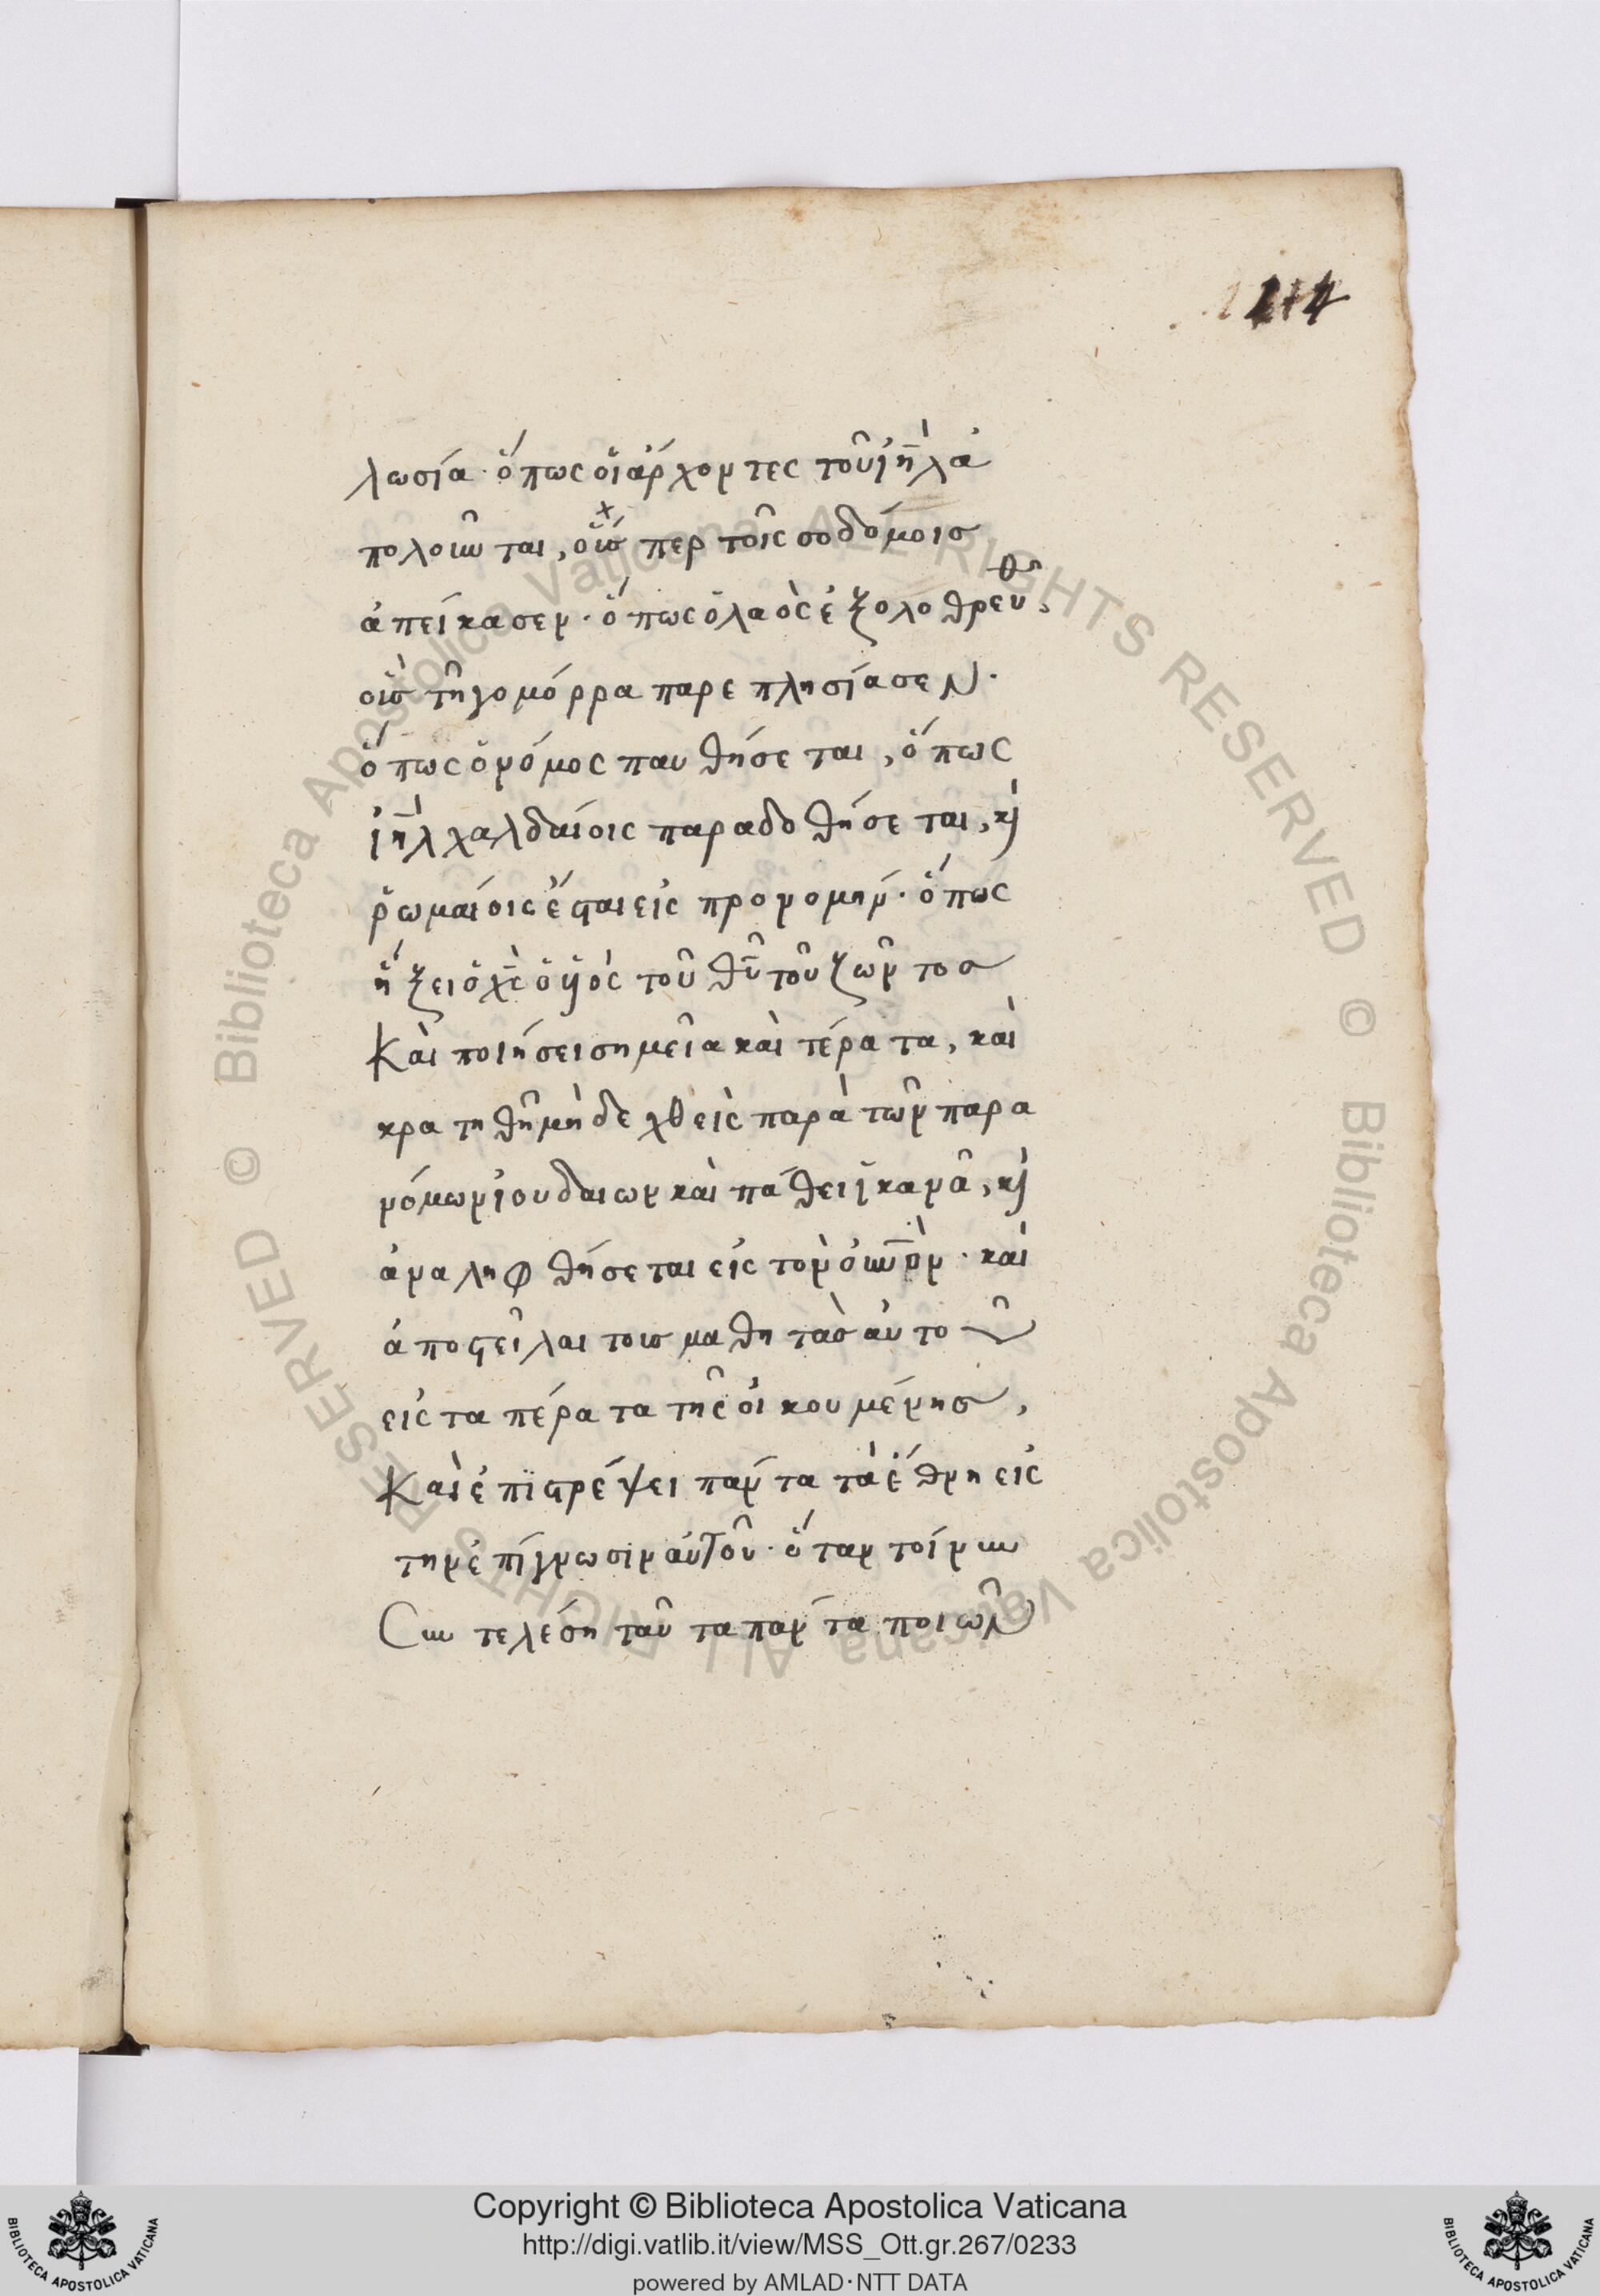 244
λωσία· ὅπως οἱ ἄρχοντες τοῦ ἰη̅λ ἀ
πολοῦνται, οἷσπερ τοῖς σοδόμοισ
ἀπείκασεν· ὅπως ὁ λαὸς ἐξολοθρευθῆ,
οἷσ τῆ γομόρρα παρεπλησίασεν·
ὅπως ὁ νόμος παυθήσεται, ὅπως
ἰη̅λ χαλδαίοις παραδοθήσεται, κ̀
ῥωμαίοις ἔσται εἰς προνομήν· ὅπως
ἥξει ὁ χ̅ς ὁ υἱὸς τοῦ θ̅υ τοῦ ζῶντοσ
Καὶ ποιήσει σημεῖα καὶ τέρατα, καὶ
κρατηθῆ μὴ δεχθεὶς παρὰ τῶν παρα
νόμων ἰουδαιων καὶ πάθει ἱκανᾶ, κ̀
ἀναληφθήσεται εἰς τὸν οὐ̅νὸν· καὶ
ἀποστεῖλαι τουσ μαθητὰσ αὐτοῦ
εἰς τα πέρατα τῆς οἰκουμένησ,
Καὶ ἐπιστρέψει πάντα τὰ ἔθνη εἰς
την ἐπίγνωσιν αὐτοῦ· ὅταν τοίνυν
Συντελέση ταῦτα πάντα ποιῶν
Biblioteca Apostolica Vaticana ALL RIGHTS RESERVED © Biblioteca Apostolica Vaticana ALL RIGHTS RESERVED ©
Copyright © Biblioteca Apostolica Vaticana
http://digi.vatlib.it/view/MSS_Ott.gr.267/0233
powered by AMLAD·NTT DATA
BIBLIOTECA APOSTOLICA VATICANA
BIBLIOTECA APOSTOLICA VATICANA